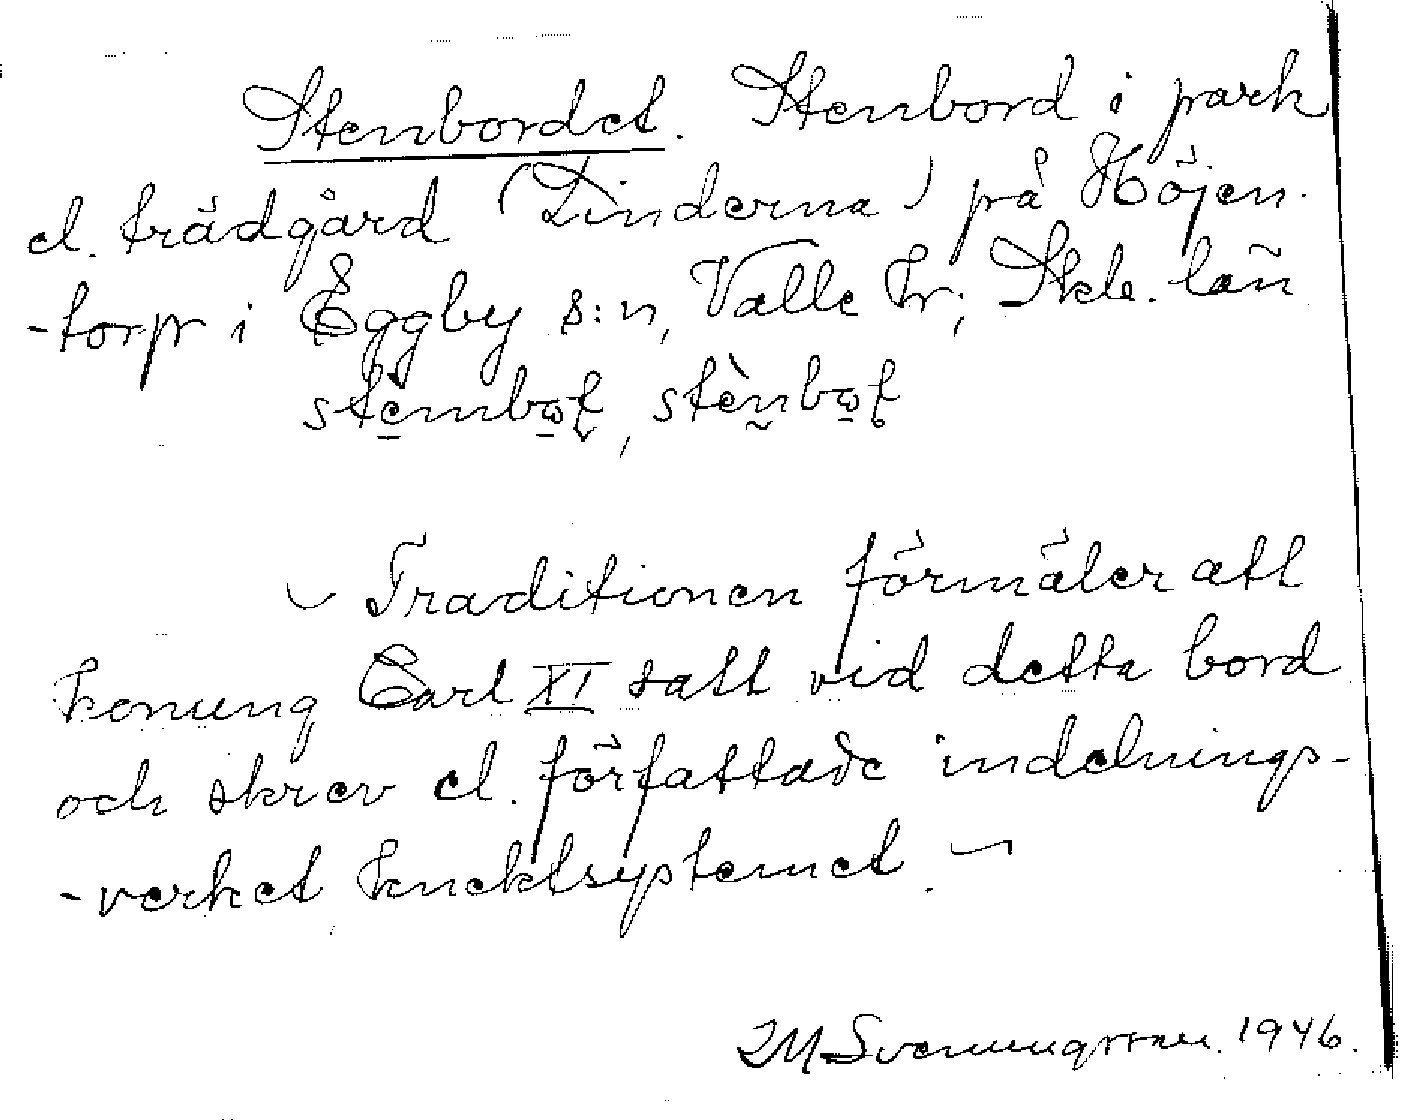 Stenbordet. Stenbord i park
el. trädgård (Linderna) på Höjen-
-torp i Eggby s:n, Valle hr; Skb. län
Traditionen förmäler att
konung Carl XI satt vid detta bord
och skrev el. författade indelnings-
-verket knektsystemet.
Svenungsson. 1946.